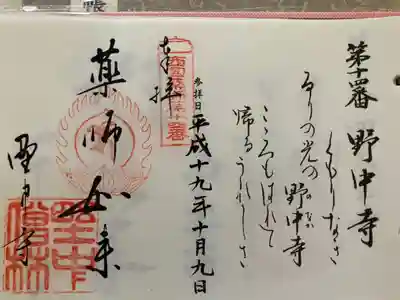 第十四番 野中寺
くもりなき
みのりの光の
野中寺
こゝろもはれて
帰るうれしさ
参拝日 平成十九年十月九日
奉拝
薬師如来
野中寺